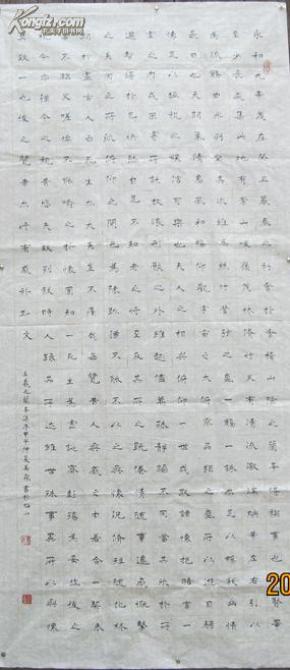 永和九年歲在癸丑暮春之初會于會稽山陰之蘭亭脩稧事也群賢畢
至少長咸集此地有崇山峻領茂林脩竹又有清流激湍映帶左右引以
為流觴曲水列坐其次雖無絲竹管弦之盛一觴一詠亦足以暢敘幽情
是日也天朗氣清惠風和暢仰觀宇宙之大俯察品類之盛所以遊目騁
懷足以極視聽之娛信可樂也夫人之相與俯仰一世或取諸懷抱悟言一
室之內或因寄所託放浪形骸之外雖趣舍萬殊靜躁不同當其欣於所
遇暫得於己快然自足不知老之將至及其所之既惓情隨事遷感慨係
之矣向之所欣俯仰之間已為陳迹猶不能不以之興懷況脩短隨化終
期於盡古人云死生亦大矣豈不痛哉每覽昔人興感之由若合一契未
嘗不臨文嗟悼不能喻之於懷固知一死生為虛誕齊彭殤為妄作後之
視今亦猶今之視昔悲夫故列敘時人錄其所述雖世殊事異所以興懷
其致一也後之覽者亦將有感於斯文
王羲之蘭亭序
20